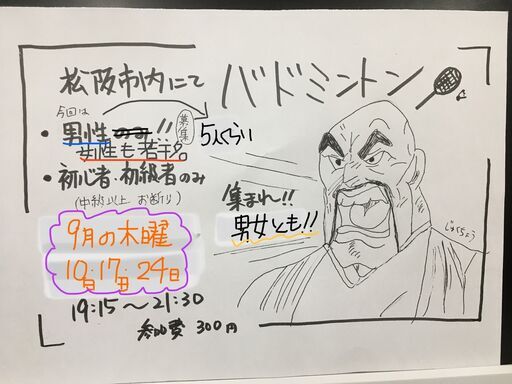 松阪市内にて
バドミントン
今回は
・男性のみ!! 募集 5人くらい
女性も若干名
・初心者・初級者のみ
(中級以上 お断り)
9月の木曜
10日・17日・24日
19:15〜21:30
参加費 300円
集まれ!!
男女とも!!
じゅくちょう